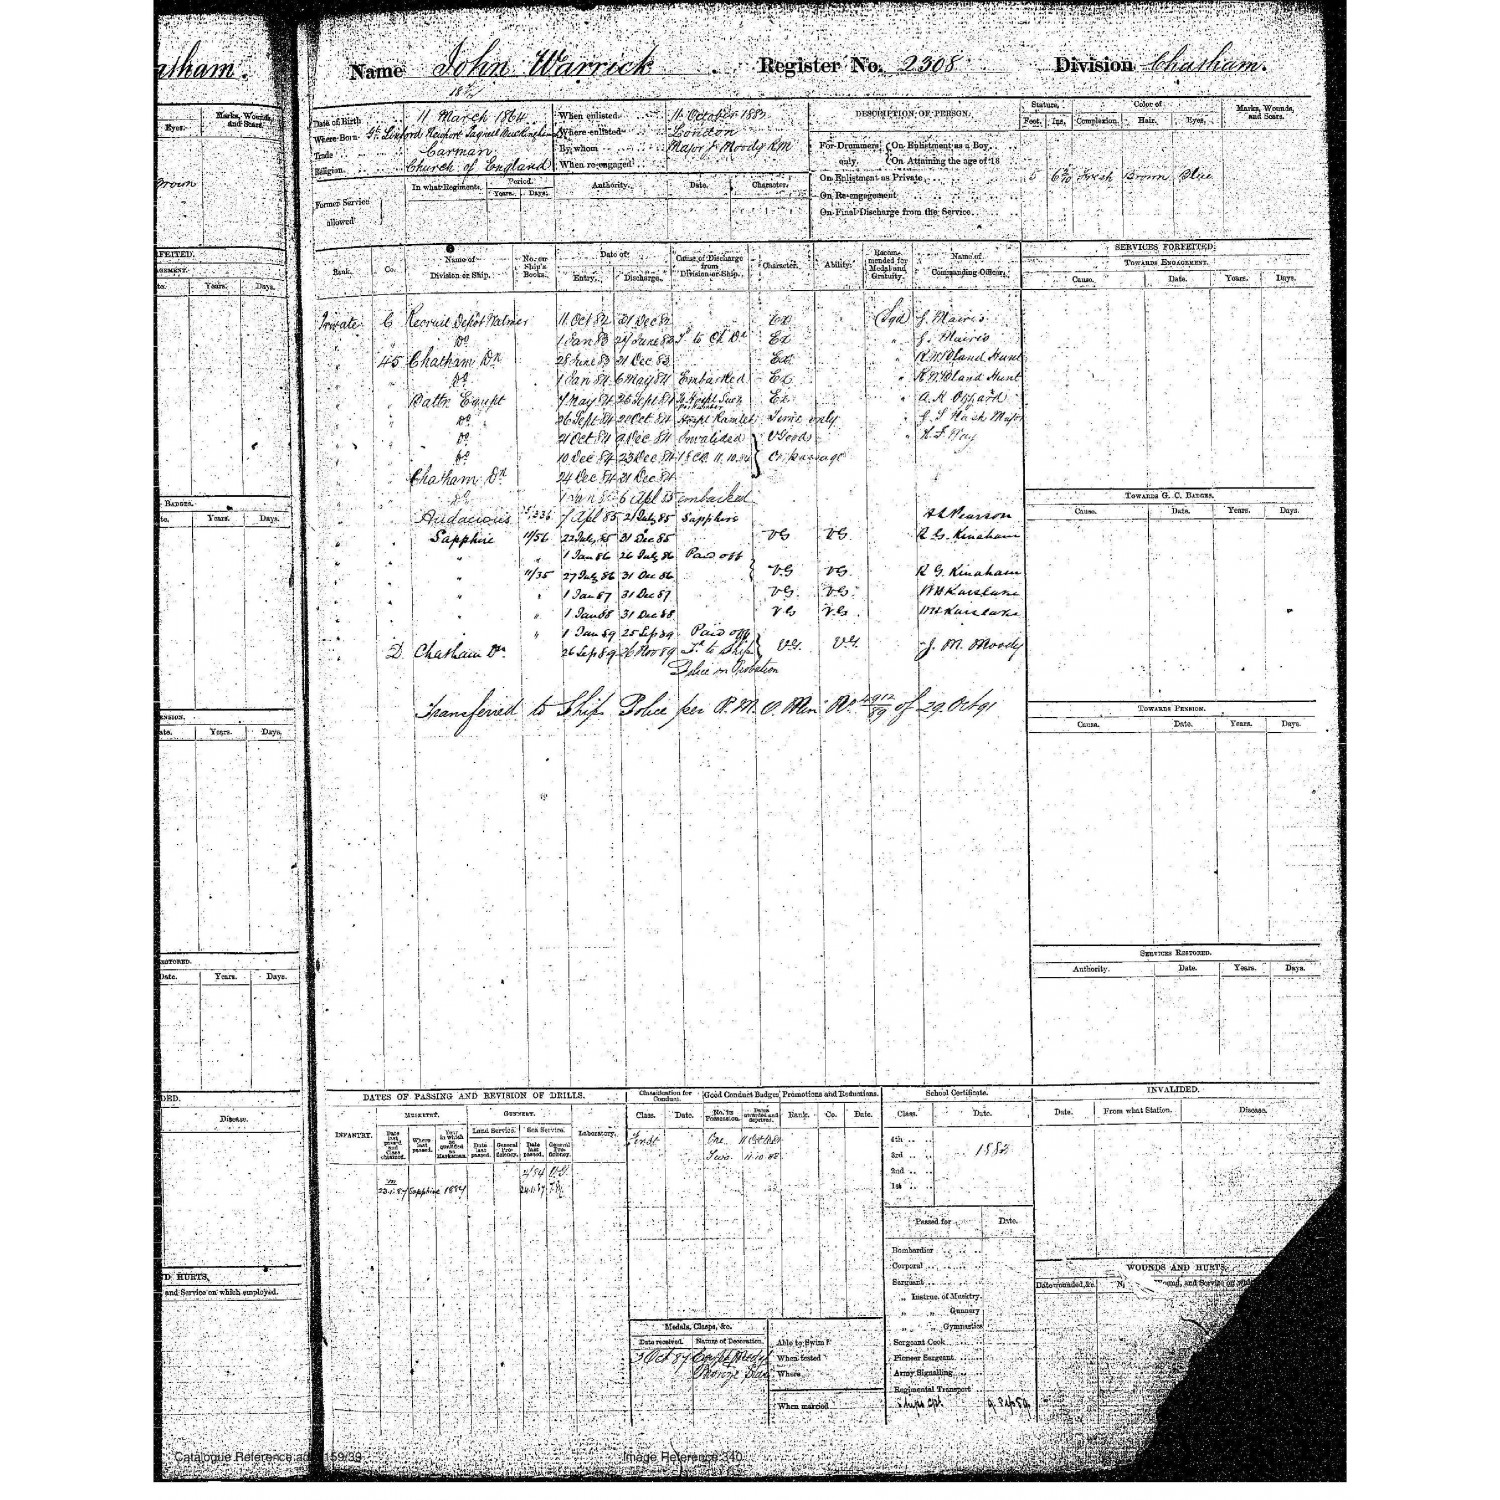 atham.
Name John Warrick Register No. 2308 Division Chatham.
Date of Birth 11 March 1864 When enlisted 11 October 1882
Where Born Newport Pagnell Buckingham Where enlisted London
Trade Carman By whom Major J Moody RM
Religion Church of England When re-engaged
Former Service allowed
In what Regiments. Period. Years. Days. Authority. Date. Character.
DESCRIPTION OF PERSON. Stature, Feet. Ins. Complexion. Color of Hair. Eyes. Marks, Wounds, and Scars.
For Drummers only. On Enlistment as a Boy
On Attaining the age of 18
On Enlistment as Private 5 6 Fresh Brown Blue
On Re-engagement
On Final Discharge from the Service
Eyes. Marks, Wounds, and Scars.
Brown
Rank. Co. Name of Division or Ship. No. on Ship's Books. Date of Entry. Discharge. Cause of Discharge from Division or Ship. Character. Ability. Recommended for Medal and Gratuity. Name of Commanding Officer.
Private C Recruit Depot Walmer 11 Oct 82 31 Dec 82 Ex (Sgd) G. Mairis
" " Do 1 Jan 83 27 June 83 Td to Ch Dn Ex " G. Mairis
" 45 Chatham Dn 28 June 83 31 Dec 83 Ex " R W Bland Hunt
" " Do 1 Jan 84 6 May 84 Embarked Ex " R W Bland Hunt
" " Battn Egypt 7 May 84 25 Sept 84 To Hospl Ex " A. R Ozzard
" " Do 26 Sept 84 20 Oct 84 Hospl Ramleh Time only " G S Hash Major
" " Do 21 Oct 84 9 Dec 84 Invalided V Good " N. F. Way
" " Do 10 Dec 84 23 Dec 84 On passage
" " Chatham Dn 24 Dec 84 31 Dec 84
" " Do 6 Apl 85 embarked
" " Audacious 236 7 Apl 85 21 July 85 Sapphire Pearson
" " Sapphire 11/56 22 July 85 31 Dec 85 VG VG R G. Kinahan
" " " " 1 Jan 86 26 July 86 Paid off
" " " 11/35 27 July 86 31 Dec 86 VG VG R G. Kinahan
" " " " 1 Jan 87 31 Dec 87 VG VG W H Karslake
" " " " 1 Jan 88 31 Dec 88 VG VG W H Karslake
" " " 1 Jan 89 25 Sep 89 Paid off
" D Chatham Dn 26 Sep 89 26 Nov 89 Td to Ship VG. VG. J. M. Moody
Police on Probation
Transferred to Ship Police per R. M. O. Min. No. 4912/89 of 29 Oct 91
SERVICES FORFEITED.
TOWARDS ENGAGEMENT.
Cause. Date. Years. Days.
TOWARDS G. C. BADGES.
Cause. Date. Years. Days.
TOWARDS PENSION.
Cause. Date. Years. Days.
SERVICES RESTORED.
Authority. Date. Years. Days.
DATES OF PASSING AND REVISION OF DRILLS.
INFANTRY. MUSKETRY. GUNNERY. Laboratory.
Date last passed and Class obtained. Where last passed. Year in which so qualified as Marksman. Land Service. Date last passed. General Proficiency. Sea Service. Date last passed. General Proficiency.
4/84 VG
23.1.87 Sapphire 1887 24.1.87
Classification for Conduct. Class. Date.
First
Good Conduct Badges No. in Possession. Dates awarded and deprived.
One. 11 Oct
Two. 11.10.88
Promotions and Reductions. Rank. Co. Date.
School Certificate. Class. Date.
4th
3rd 1882
2nd
1st
Passed for Date.
Bombardier
Corporal
Sergeant
" Instruc. of Musktry.
" " Gunnery
" " Gymnastics
Sergeant Cook
Pioneer Sergeant
Army Signalling
Regimental Transport
Ships Cpl 9 Sep 89
Medals, Clasps, &c.
Date received. Nature of Decoration.
3 Oct 87 Egypt Medal
Bronze Star
Able to Swim?
When tested
Where
When married
INVALIDED.
Date. From what Station. Disease.
WOUNDS AND HURTS.
Date wounded, &c. ound, and Service on
FEITED.
Years. Days.
BADGES.
Years. Days.
ENSION.
Years. Days.
STORED.
Date. Years. Days.
Disease.
D HURTS.
and Service on which employed.
Catalogue Reference:adm 159/39 Image Reference:340